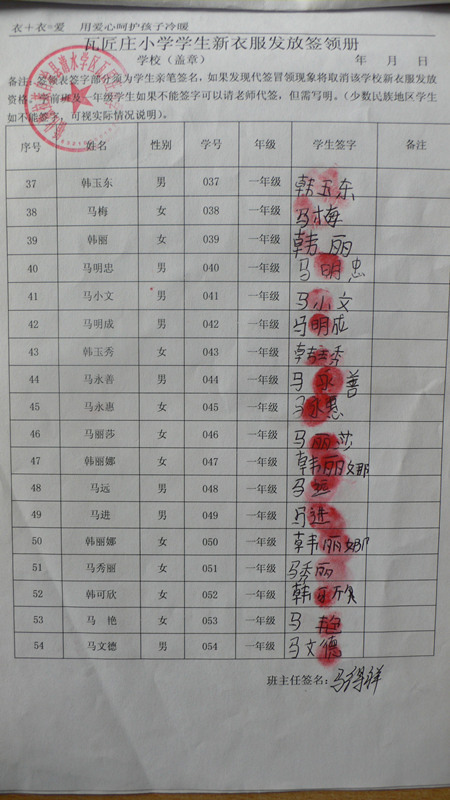 衣+衣=爱 用爱心呵护孩子冷暖
瓦匠庄小学学生新衣服发放签领册
学校（盖章） 年 月 日
备注：签领表签字部分须为学生亲笔签名，如果发现代签冒领现象将取消该学校新衣服发放
资格。学前班及一年级学生如果不能签字可以请老师代签，但需写明。（少数民族地区学生
如不能签字，可视实际情况说明）。
序号 姓名 性别 学号 年级 学生签字 备注
37 韩玉东 男 037 一年级 韩玉东
38 马梅 女 038 一年级 马梅
39 韩丽 女 039 一年级 韩丽
40 马明忠 男 040 一年级 马明忠
41 马小文 男 041 一年级 马小文
42 马明成 男 042 一年级 马明成
43 韩玉秀 女 043 一年级 韩玉秀
44 马永善 男 044 一年级 马永善
45 马永惠 女 045 一年级 马永惠
46 马丽莎 女 046 一年级 马丽莎
47 韩丽娜 女 047 一年级 韩丽娜
48 马远 男 048 一年级 马远
49 马进 男 049 一年级 马进
50 韩丽娜 女 050 一年级 韩丽娜
51 马秀丽 女 051 一年级 马秀丽
52 韩可欣 女 052 一年级 韩可欣
53 马 艳 女 053 一年级 马 艳
54 马文德 男 054 一年级 马文德
班主任签名：马得祥